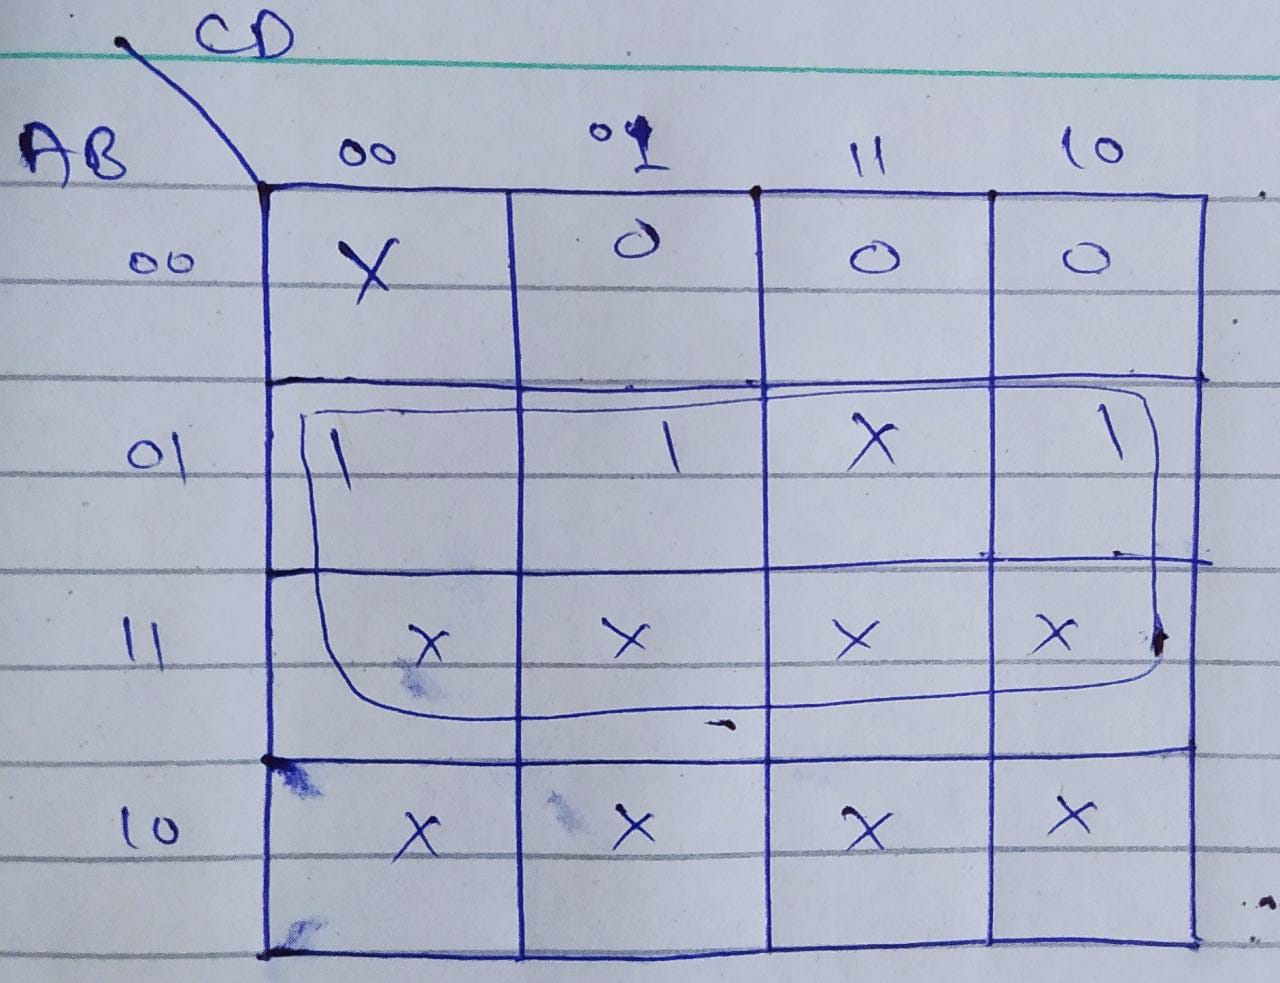 CD
AB 00 01 11 10
00 X 0 0 0
01 1 1 X 1
11 X X X X
10 X X X X